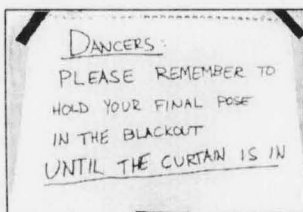 DANCERS:
PLEASE REMEMBER TO
HOLD YOUR FINAL POSE
IN THE BLACKOUT
UNTIL THE CURTAIN IS IN